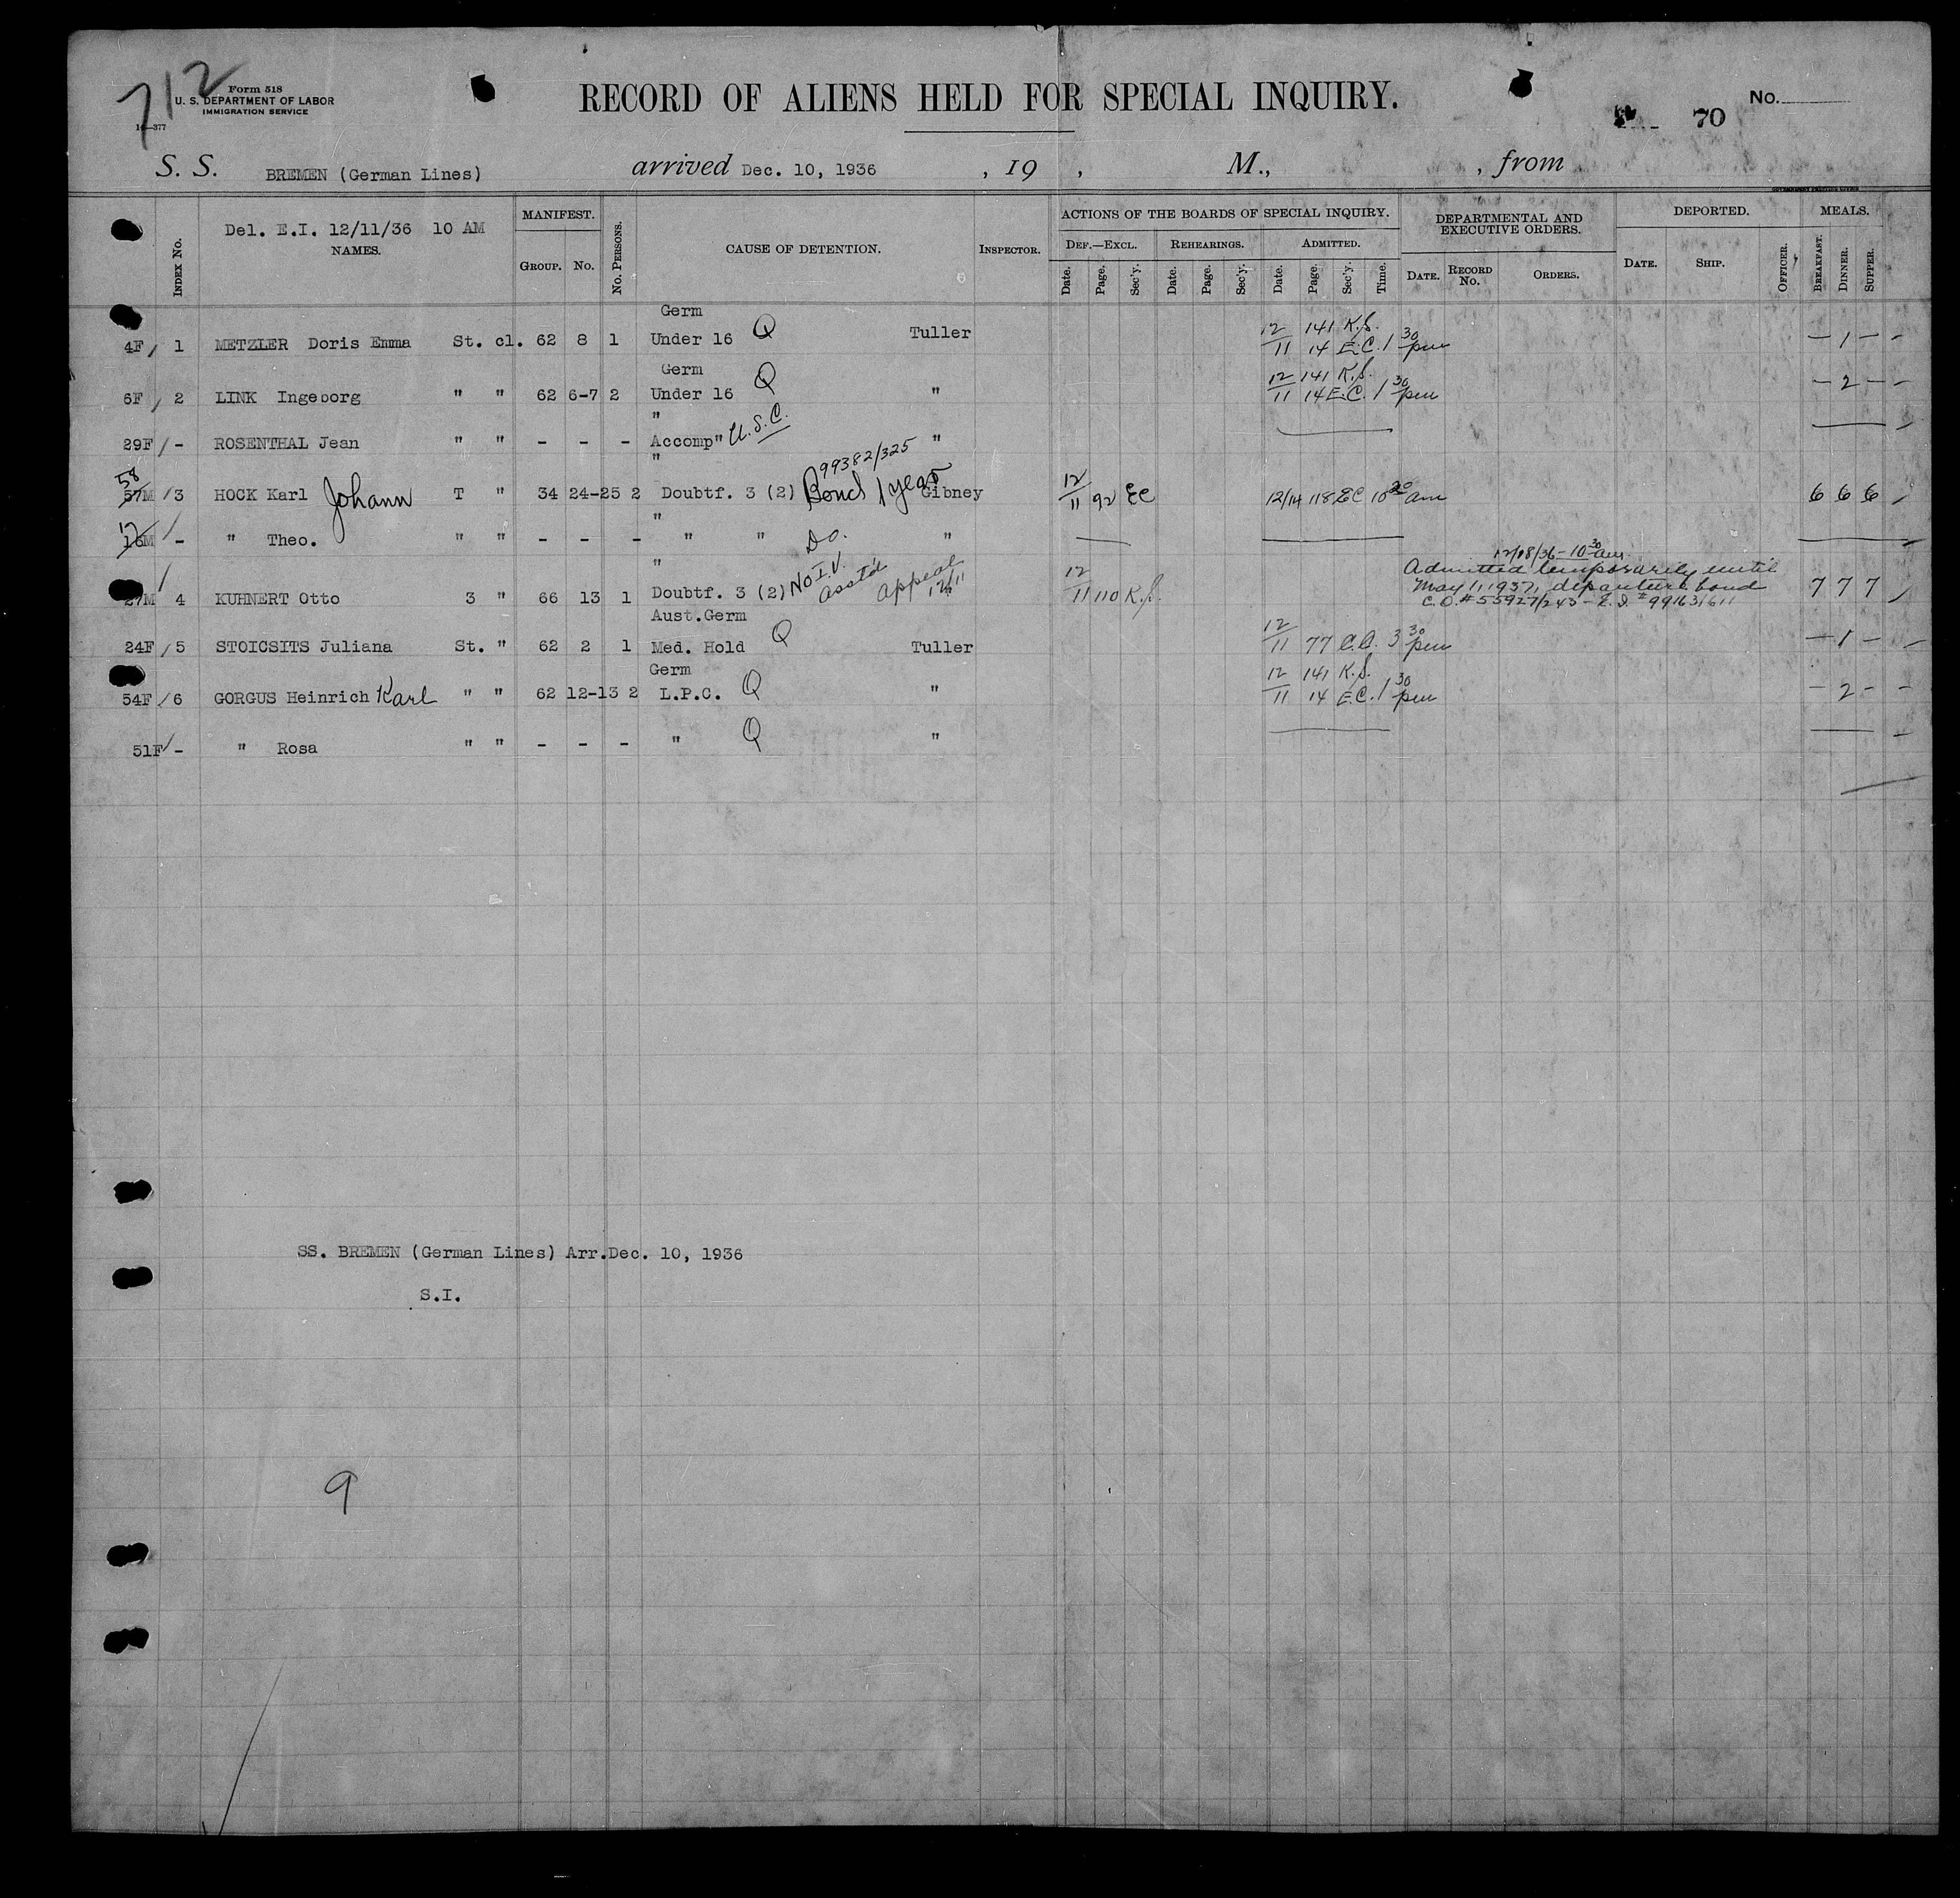 712
Form 518
U. S. DEPARTMENT OF LABOR
IMMIGRATION SERVICE
RECORD OF ALIENS HELD FOR SPECIAL INQUIRY.
70 No.
S. S. BREMEN (German Lines) arrived Dec. 10, 1936 , 19 , M., , from
Del. E.I. 12/11/36 10 AM
INDEX NO. NAMES. MANIFEST. GROUP. NO. NO. PERSONS. CAUSE OF DETENTION. INSPECTOR. ACTIONS OF THE BOARDS OF SPECIAL INQUIRY. DEF.—EXCL. Date. Page. Sec'y. REHEARINGS. Date. Page. Sec'y. ADMITTED. Date. Page. Sec'y. Time. DEPARTMENTAL AND EXECUTIVE ORDERS. DATE. RECORD NO. ORDERS. DEPORTED. DATE. SHIP. OFFICER. MEALS. BREAKFAST. DINNER. SUPPER.
Germ
4F / 1 METZLER Doris Emma St. cl. 62 8 1 Under 16 Q Tuller 12/11 141 K.S. 14 E.C. 1 30 pm — 1 — -
Germ
6F / 2 LINK Ingeborg " " 62 6-7 2 Under 16 Q " 12/11 141 K.S. 14 E.C. 1 30 pm — 2 — -
"
29F / - ROSENTHAL Jean " " - - - Accomp" U.S.C. "
" 99382/325
58 57M / 3 HOCK Karl Johann T " 34 24-25 2 Doubtf. 3 (2) Bond 1 year Gibney 12/11 92 EC 12/14 118 EC 10 20 am 6 6 6
"
17 16M / - " Theo. " " - - - " " Do. "
" 12/18/36 - 10 30 am.
27M / 4 KUHNERT Otto 3 " 66 13 1 Doubtf. 3 (2) No I.V. asst'd Appeal 12/11 12/11 110 K.S. Admitted temporarily until
May 1, 1937, departure bond 7 7 7
C.O. # 55927/243 -
Aust.Germ
24F / 5 STOICSITS Juliana St. " 62 2 1 Med. Hold Q Tuller 12/11 77 3 30 pm — 1 — -
Germ
54F / 6 GORGUS Heinrich Karl " " 62 12-13 2 L.P.C. Q " 12/11 141 K.S. 14 E.C. 1 30 pm — 2 - -
51F / - " Rosa " " - - - " Q "
SS. BREMEN (German Lines) Arr.Dec. 10, 1936
S.I.
9